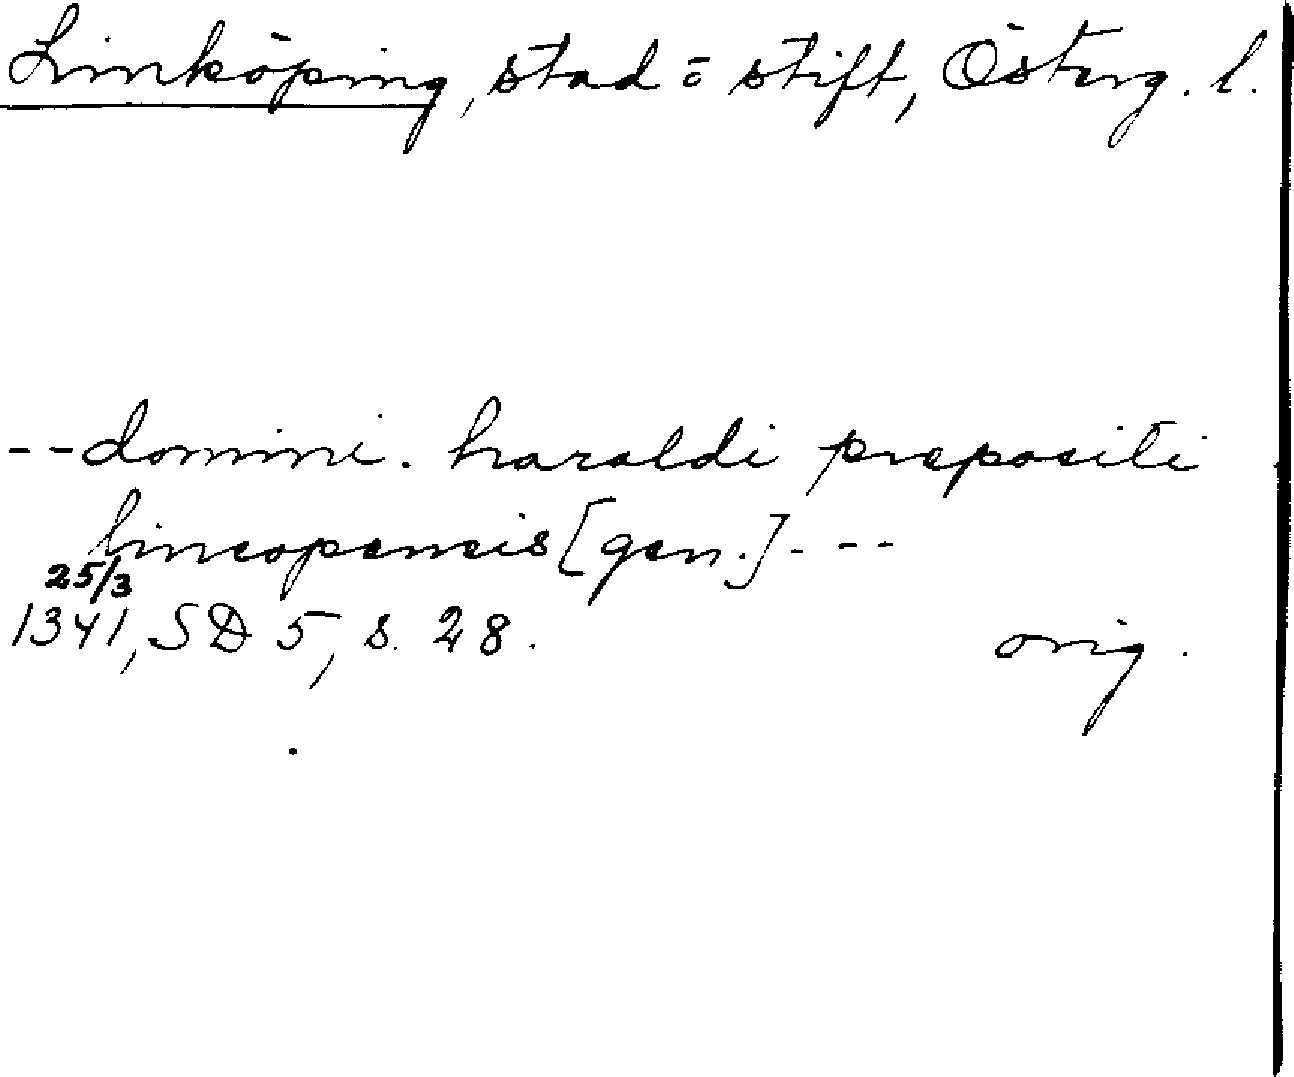 Linköping, stad o stift, Österg. l.
--domini. haraldi prepositi
lincopensis [gen.]. --
25/3
1341, SD 5, s. 28. orig.